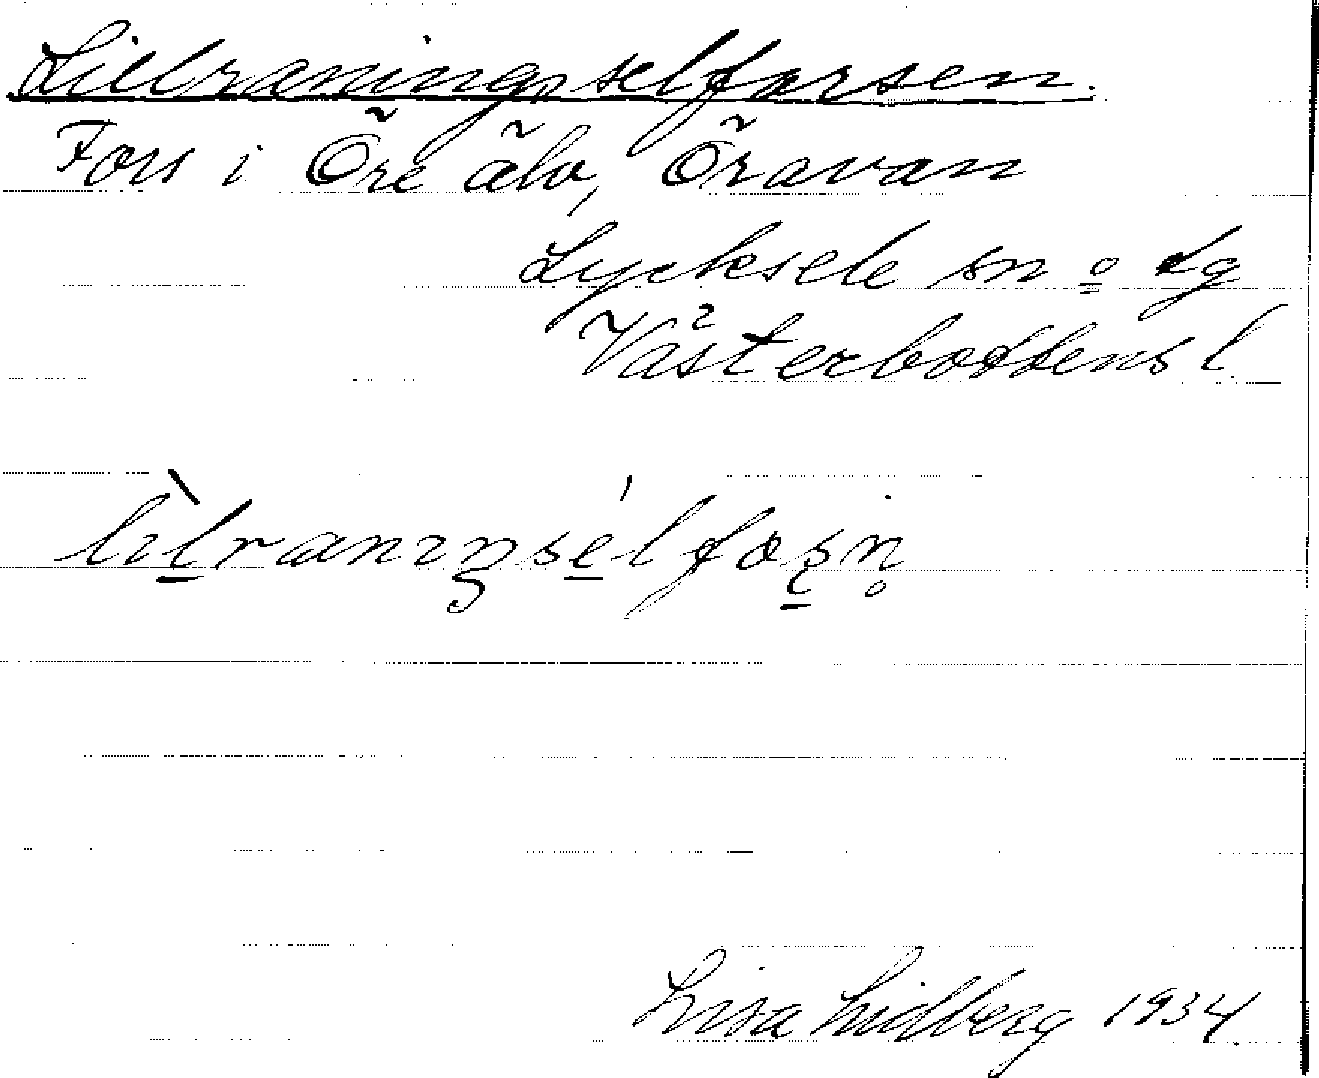 Lillraningsselforsen.
Fors i Öre älv, Öravan
Lycksele sn o lg
Västerbottens l.
Lisa Lidberg 1934.